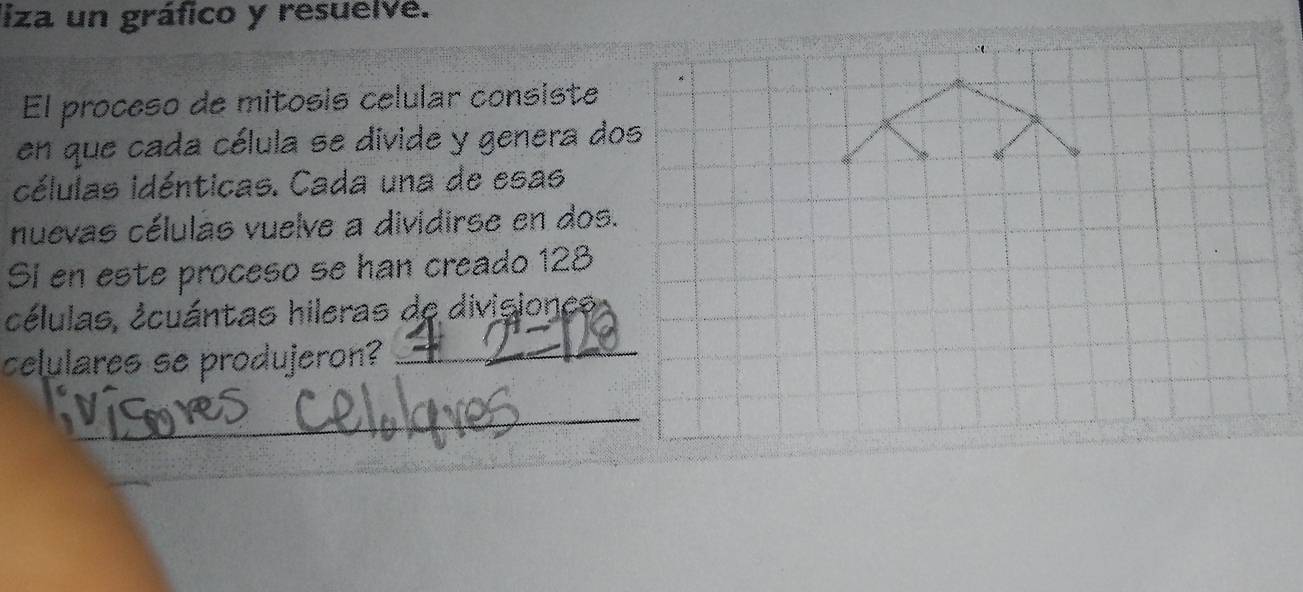 liza un gráfico y resuelve.
El proceso de mitosis celular consiste
en que cada célula se divide y genera dos
células idénticas. Cada una de esas
nuevas células vuelve a dividirse en dos.
Si en este proceso se han creado 128
células, ¿cuántas hileras de divisiones
celulares se produjeron? 7 2⁷=128
divisores celulares